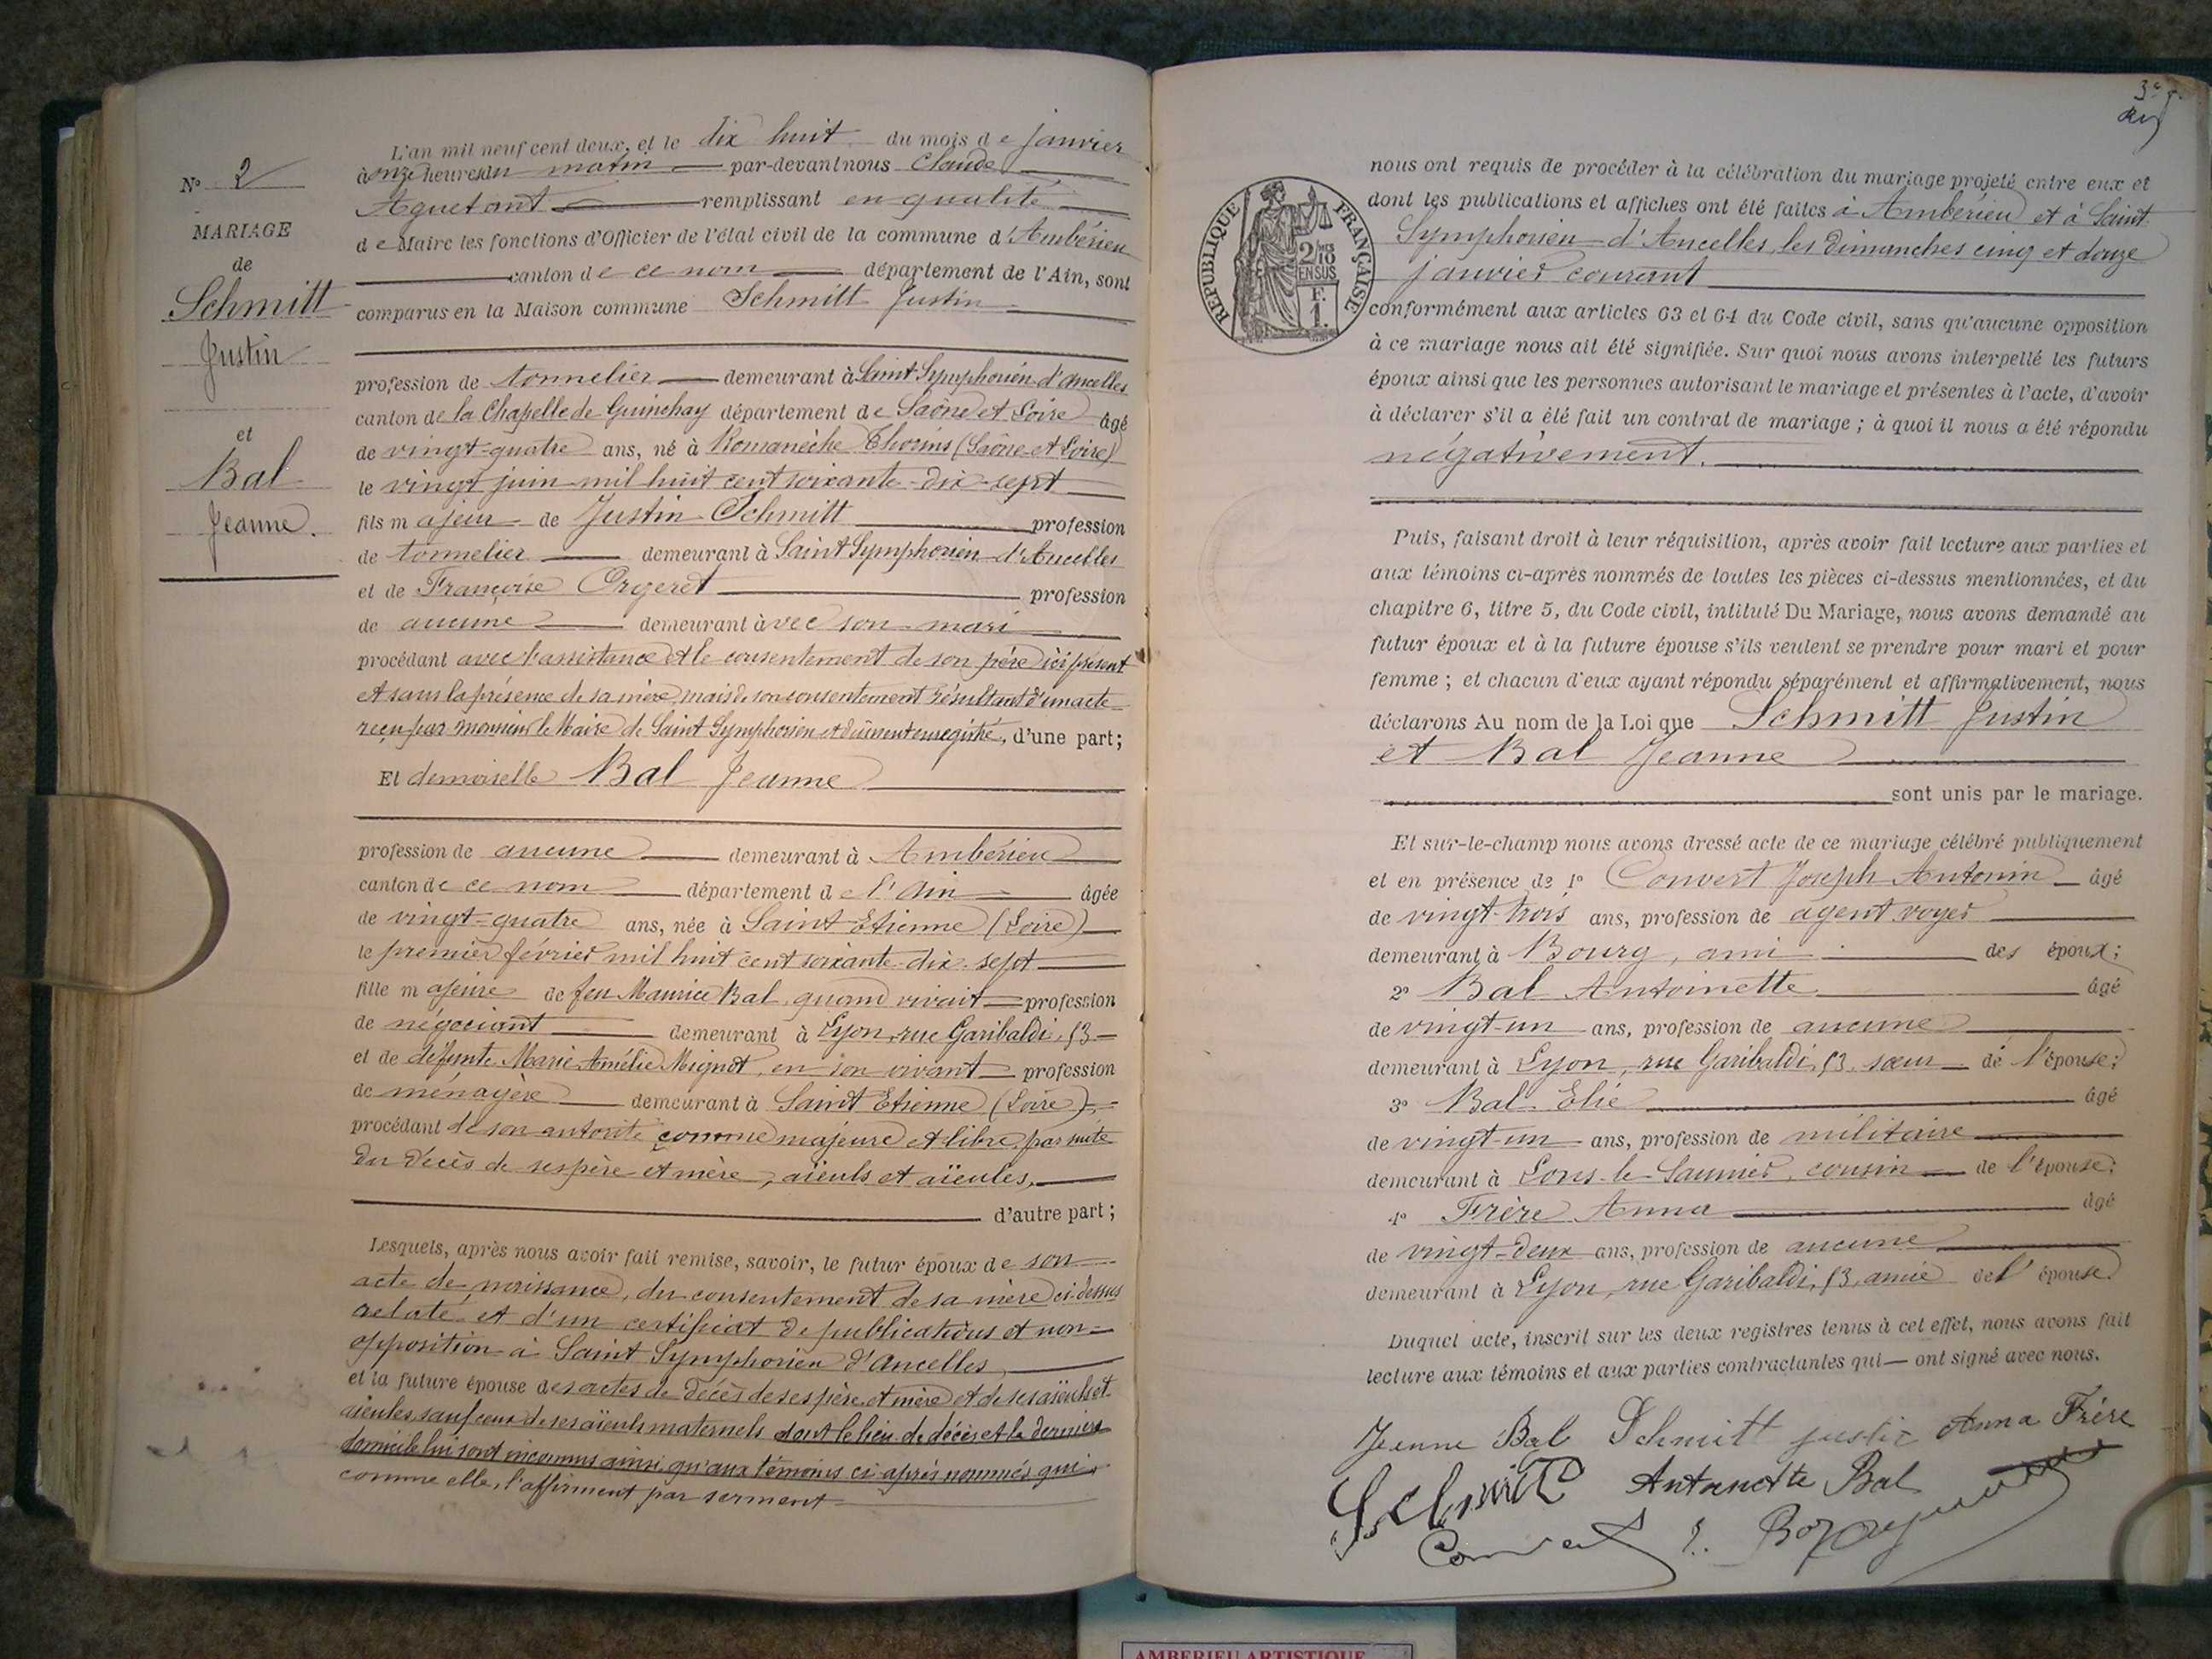 N° 2
MARIAGE
de
Schmitt
Justin
et
Bal
Jeanne.
L'an mil neuf cent deux, et le dix huit du mois de janvier
à onze heures du matin par-devant nous Claude
Aguetant remplissant en qualité
de Maire les fonctions d'Officier de l'état civil de la commune d'Ambérieu
canton de ce nom département de l'Ain, sont
comparus en la Maison commune Schmitt Justin
profession de tonnelier demeurant à Saint Symphorien d'Ancelles
canton de la Chapelle de Guinchay département de Saône et Loire âgé
de vingt-quatre ans, né à Romanèche Thorins (Saône et Loire)
le vingt juin mil huit cent soixante-dix-sept
fils majeur de Justin Schmitt profession
de tonnelier demeurant à Saint Symphorien d'Ancelles
et de Françoise Orgeret profession
de aucune demeurant avec son mari
procédant avec l'assistance et le consentement de son père ici présent
et sans la présence de sa mère, mais de son consentement résultant d'un acte
reçu par monsieur le Maire de Saint Symphorien et dûment enregistré, d'une part;
Et demoiselle Bal Jeanne
profession de aucune demeurant à Ambérieu
canton de ce nom département de l'Ain âgée
de vingt-quatre ans, née à Saint Etienne (Loire)
le premier février mil huit cent soixante-dix-sept
fille majeure de feu Maurice Bal, quand vivait profession
de négociant demeurant à Lyon, rue Garibaldi, 53
et de défunte Marie Amélie Mignot, en son vivant profession
de ménagère demeurant à Saint Etienne (Loire),
procédant de son autorité comme majeure et libre par suite
du décès de ses père et mère, aïeuls et aïeules,
d'autre part;
Lesquels, après nous avoir fait remise, savoir, le futur époux de son
acte de naissance, du consentement de sa mère ci-dessus
relaté et d'un certificat de publications et non-
opposition à Saint Symphorien d'Ancelles
et la future épouse des actes de décès de ses père et mère et de ses aïeuls et
aïeules, sauf ceux de ses aïeuls maternels dont le lieu de décès et le dernier
domicile lui sont inconnus ainsi qu'aux témoins ci-après nommés qui,
comme elle, l'affirment par serment
3e
nous ont requis de procéder à la célébration du mariage projeté entre eux et
dont les publications et affiches ont été faites à Ambérieu et à Saint
Symphorien d'Ancelles, les dimanches cinq et douze
janvier courant
RÉPUBLIQUE FRANÇAISE
2/10
EN SUS
F.
1.
conformément aux articles 63 et 64 du Code civil, sans qu'aucune opposition
à ce mariage nous ait été signifiée. Sur quoi nous avons interpellé les futurs
époux ainsi que les personnes autorisant le mariage et présentes à l'acte, d'avoir
à déclarer s'il a été fait un contrat de mariage; à quoi il nous a été répondu
négativement.
Puis, faisant droit à leur réquisition, après avoir fait lecture aux parties et
aux témoins ci-après nommés de toutes les pièces ci-dessus mentionnées, et du
chapitre 6, titre 5, du Code civil, intitulé Du Mariage, nous avons demandé au
futur époux et à la future épouse s'ils veulent se prendre pour mari et pour
femme; et chacun d'eux ayant répondu séparément et affirmativement, nous
déclarons Au nom de la Loi que Schmitt Justin
et Bal Jeanne
sont unis par le mariage.
Et sur-le-champ nous avons dressé acte de ce mariage célébré publiquement
et en présence de 1° Convert Joseph Antonin âgé
de vingt-trois ans, profession de agent voyer
demeurant à Bourg, ami des époux;
2° Bal Antoinette âgé
de vingt-un ans, profession de aucune
demeurant à Lyon, rue Garibaldi, 53, sœur de l'épouse;
3° Bal Elie âgé
de vingt-un ans, profession de militaire
demeurant à Lons-le-Saunier, cousin de l'épouse;
4° Frère Anna âgé
de vingt-deux ans, profession de aucune
demeurant à Lyon, rue Garibaldi, 53, amie de l'épouse.
Duquel acte, inscrit sur les deux registres tenus à cet effet, nous avons fait
lecture aux témoins et aux parties contractantes qui ont signé avec nous.
Jeanne Bal Schmitt justin Anna Frère
Schmitt Antoinette Bal
Convert
AMBERIEU ARTISTIQUE